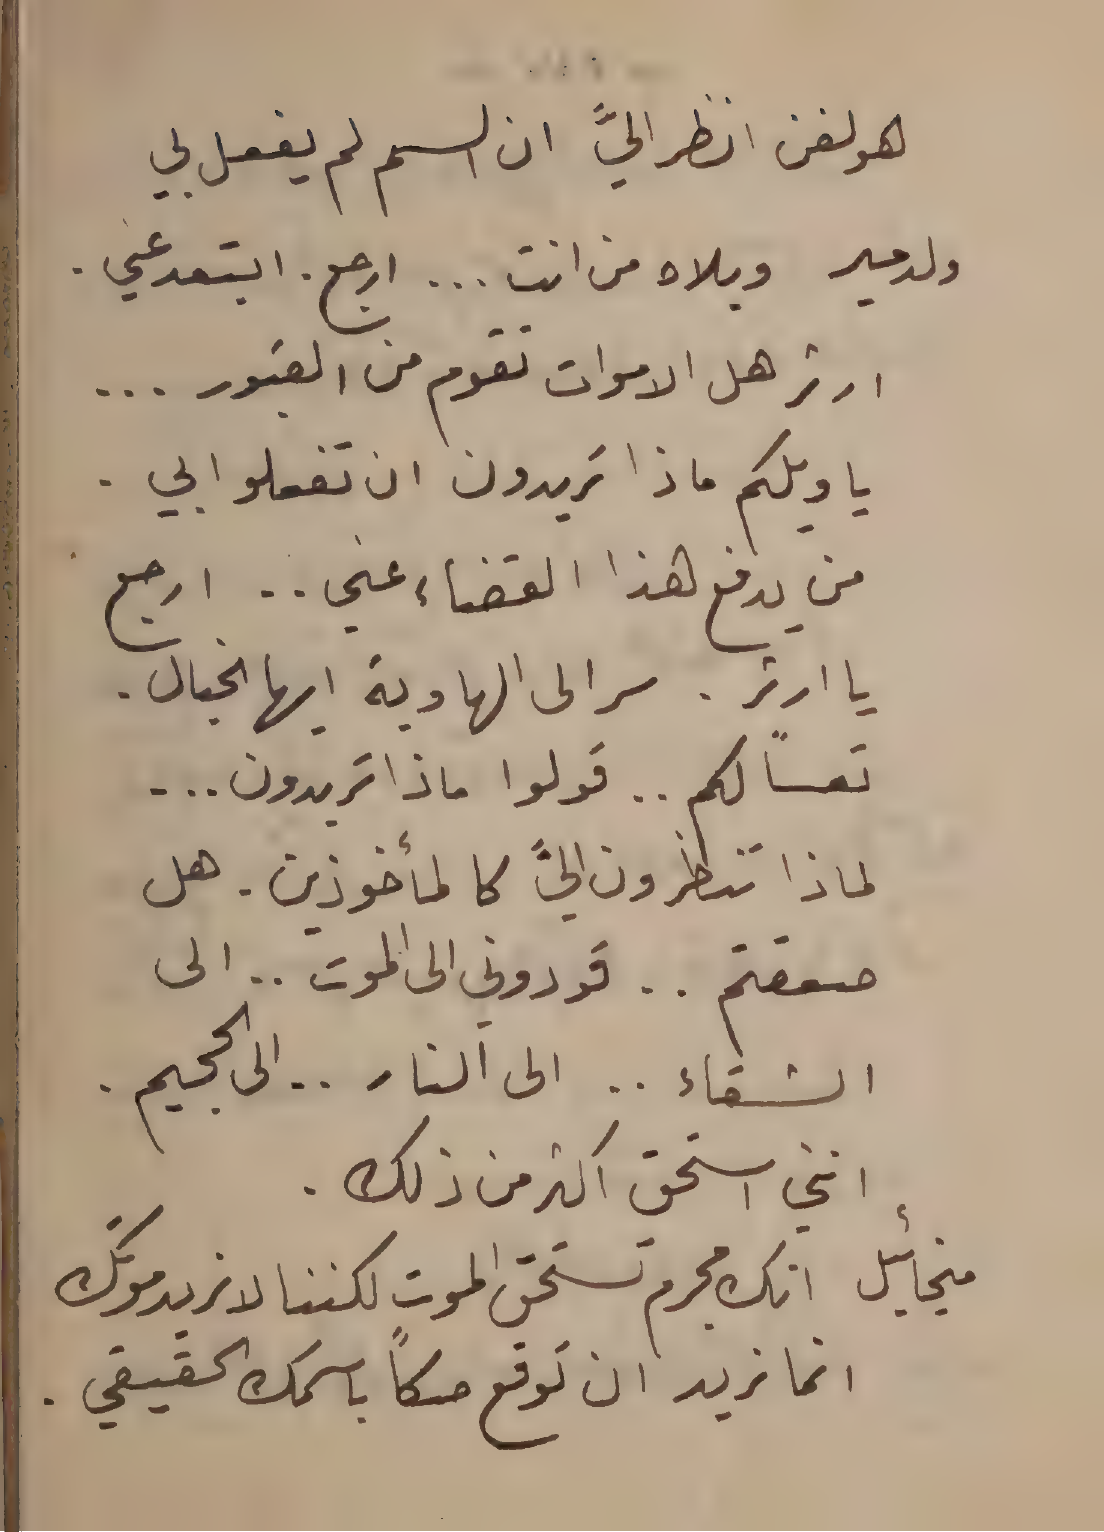 هولفن انظر اليَّ ان السم لم يفعل بي
ولدمير ويلاه من انت ... ارجع . ابتعد عني .
ارثر هل الاموات تقوم من القبور ...
يا ويلكم ماذا تريدون ان تفعلوا بي .
من يدفع هذا القضاء عني .. ارجع
يا ارثر . سر الى الهاوية ايها الخيال .
تعساً لكم .. قولوا ماذا تريدون ...
لماذا تنظرون اليَّ كالمأخوذين . هل
صعقتم .. قودوني الى الموت .. الى
الشقاء .. الى النار .. الى الجحيم .
انني استحق اكثر من ذلك .
ميخائيل انك مجرم تستحق الموت لكننا لا نريد موتك
انما نريد ان توقع صكاً باسمك الحقيقي .